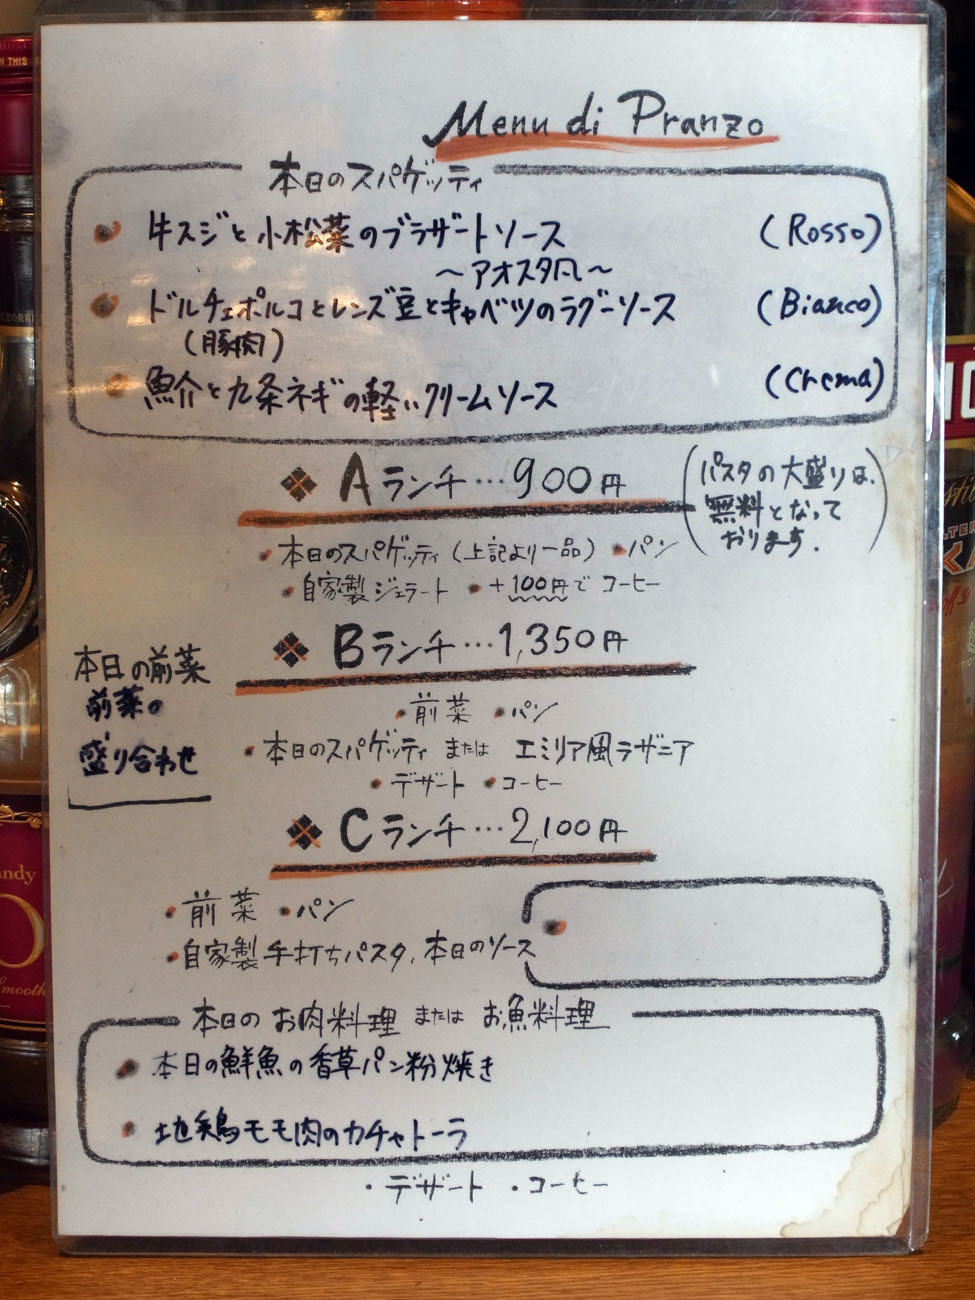 Menu di Pranzo
本日のスパゲッティ
牛スジと小松菜のブラザートソース (Rosso)
〜アオスタ風〜
ドルチェポルコとレンズ豆とキャベツのラグーソース (Bianco)
(豚肉)
魚介と九条ネギの軽いクリームソース (Crema)
Aランチ…900円
(パスタの大盛りは、
無料となって
おります.)
・本日のスパゲッティ(上記より一品) ・パン
・自家製ジェラート ・+100円で コーヒー
Bランチ…1,350円
本日の前菜
前菜の
盛り合わせ
・前菜 ・パン
・本日のスパゲッティ または エミリア風ラザニア
・デザート ・コーヒー
Cランチ…2,100円
・前菜 ・パン
・自家製手打ちパスタ、本日のソース
本日の お肉料理 または お魚料理
本日の鮮魚の香草パン粉焼き
地鶏モモ肉のカチャトーラ
・デザート ・コーヒー
andy
Smooth